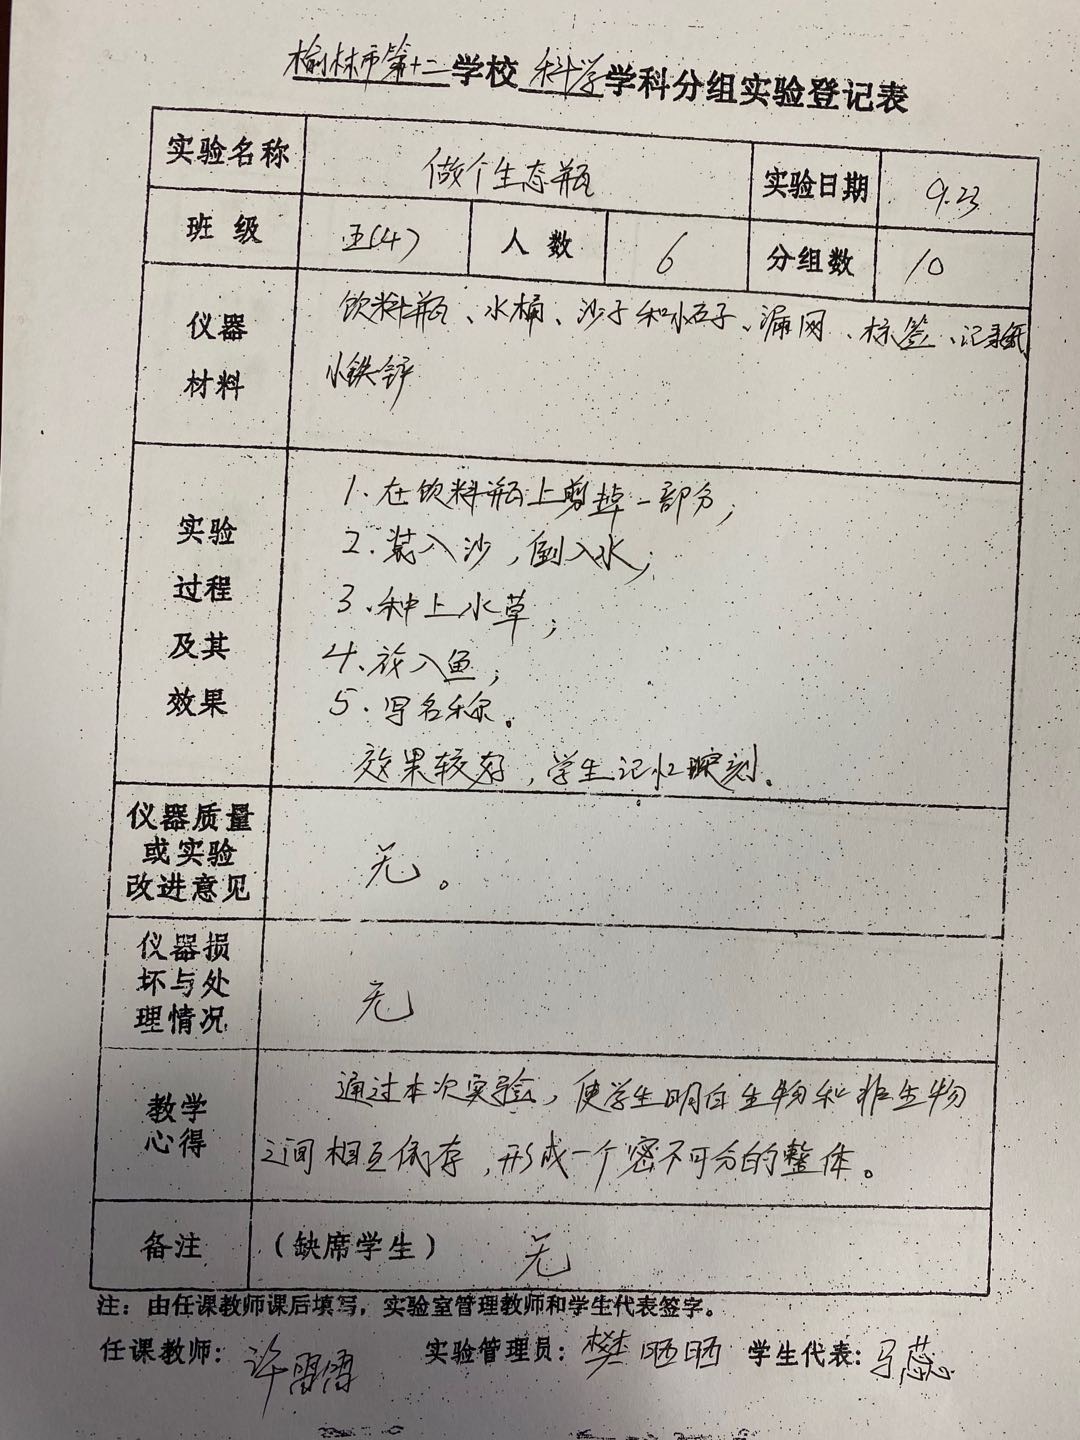 榆林市第十二学校 科学学科分组实验登记表
实验名称 做个生态瓶 实验日期 9.23
班 级 五(4) 人 数 6 分组数 10
仪器 材料 饮料瓶、水桶、沙子和小石子、漏网、标签、记录纸
小铁铲
实验 过程 及其 效果
1.在饮料瓶上剪掉一部分;
2.装入沙,倒入水;
3.种上水草;
4.放入鱼;
5.写名称。
效果较好,学生记忆深刻。
仪器质量
或实验 无。
改进意见
仪器损
坏与处 无
理情况
教学 通过本次实验,使学生明白生物和非生物
心得 之间相互依存,形成一个密不可分的整体。
备注 (缺席学生) 无
注:由任课教师课后填写,实验室管理教师和学生代表签字。
任课教师: 许 实验管理员:樊晒晒 学生代表:马蕊